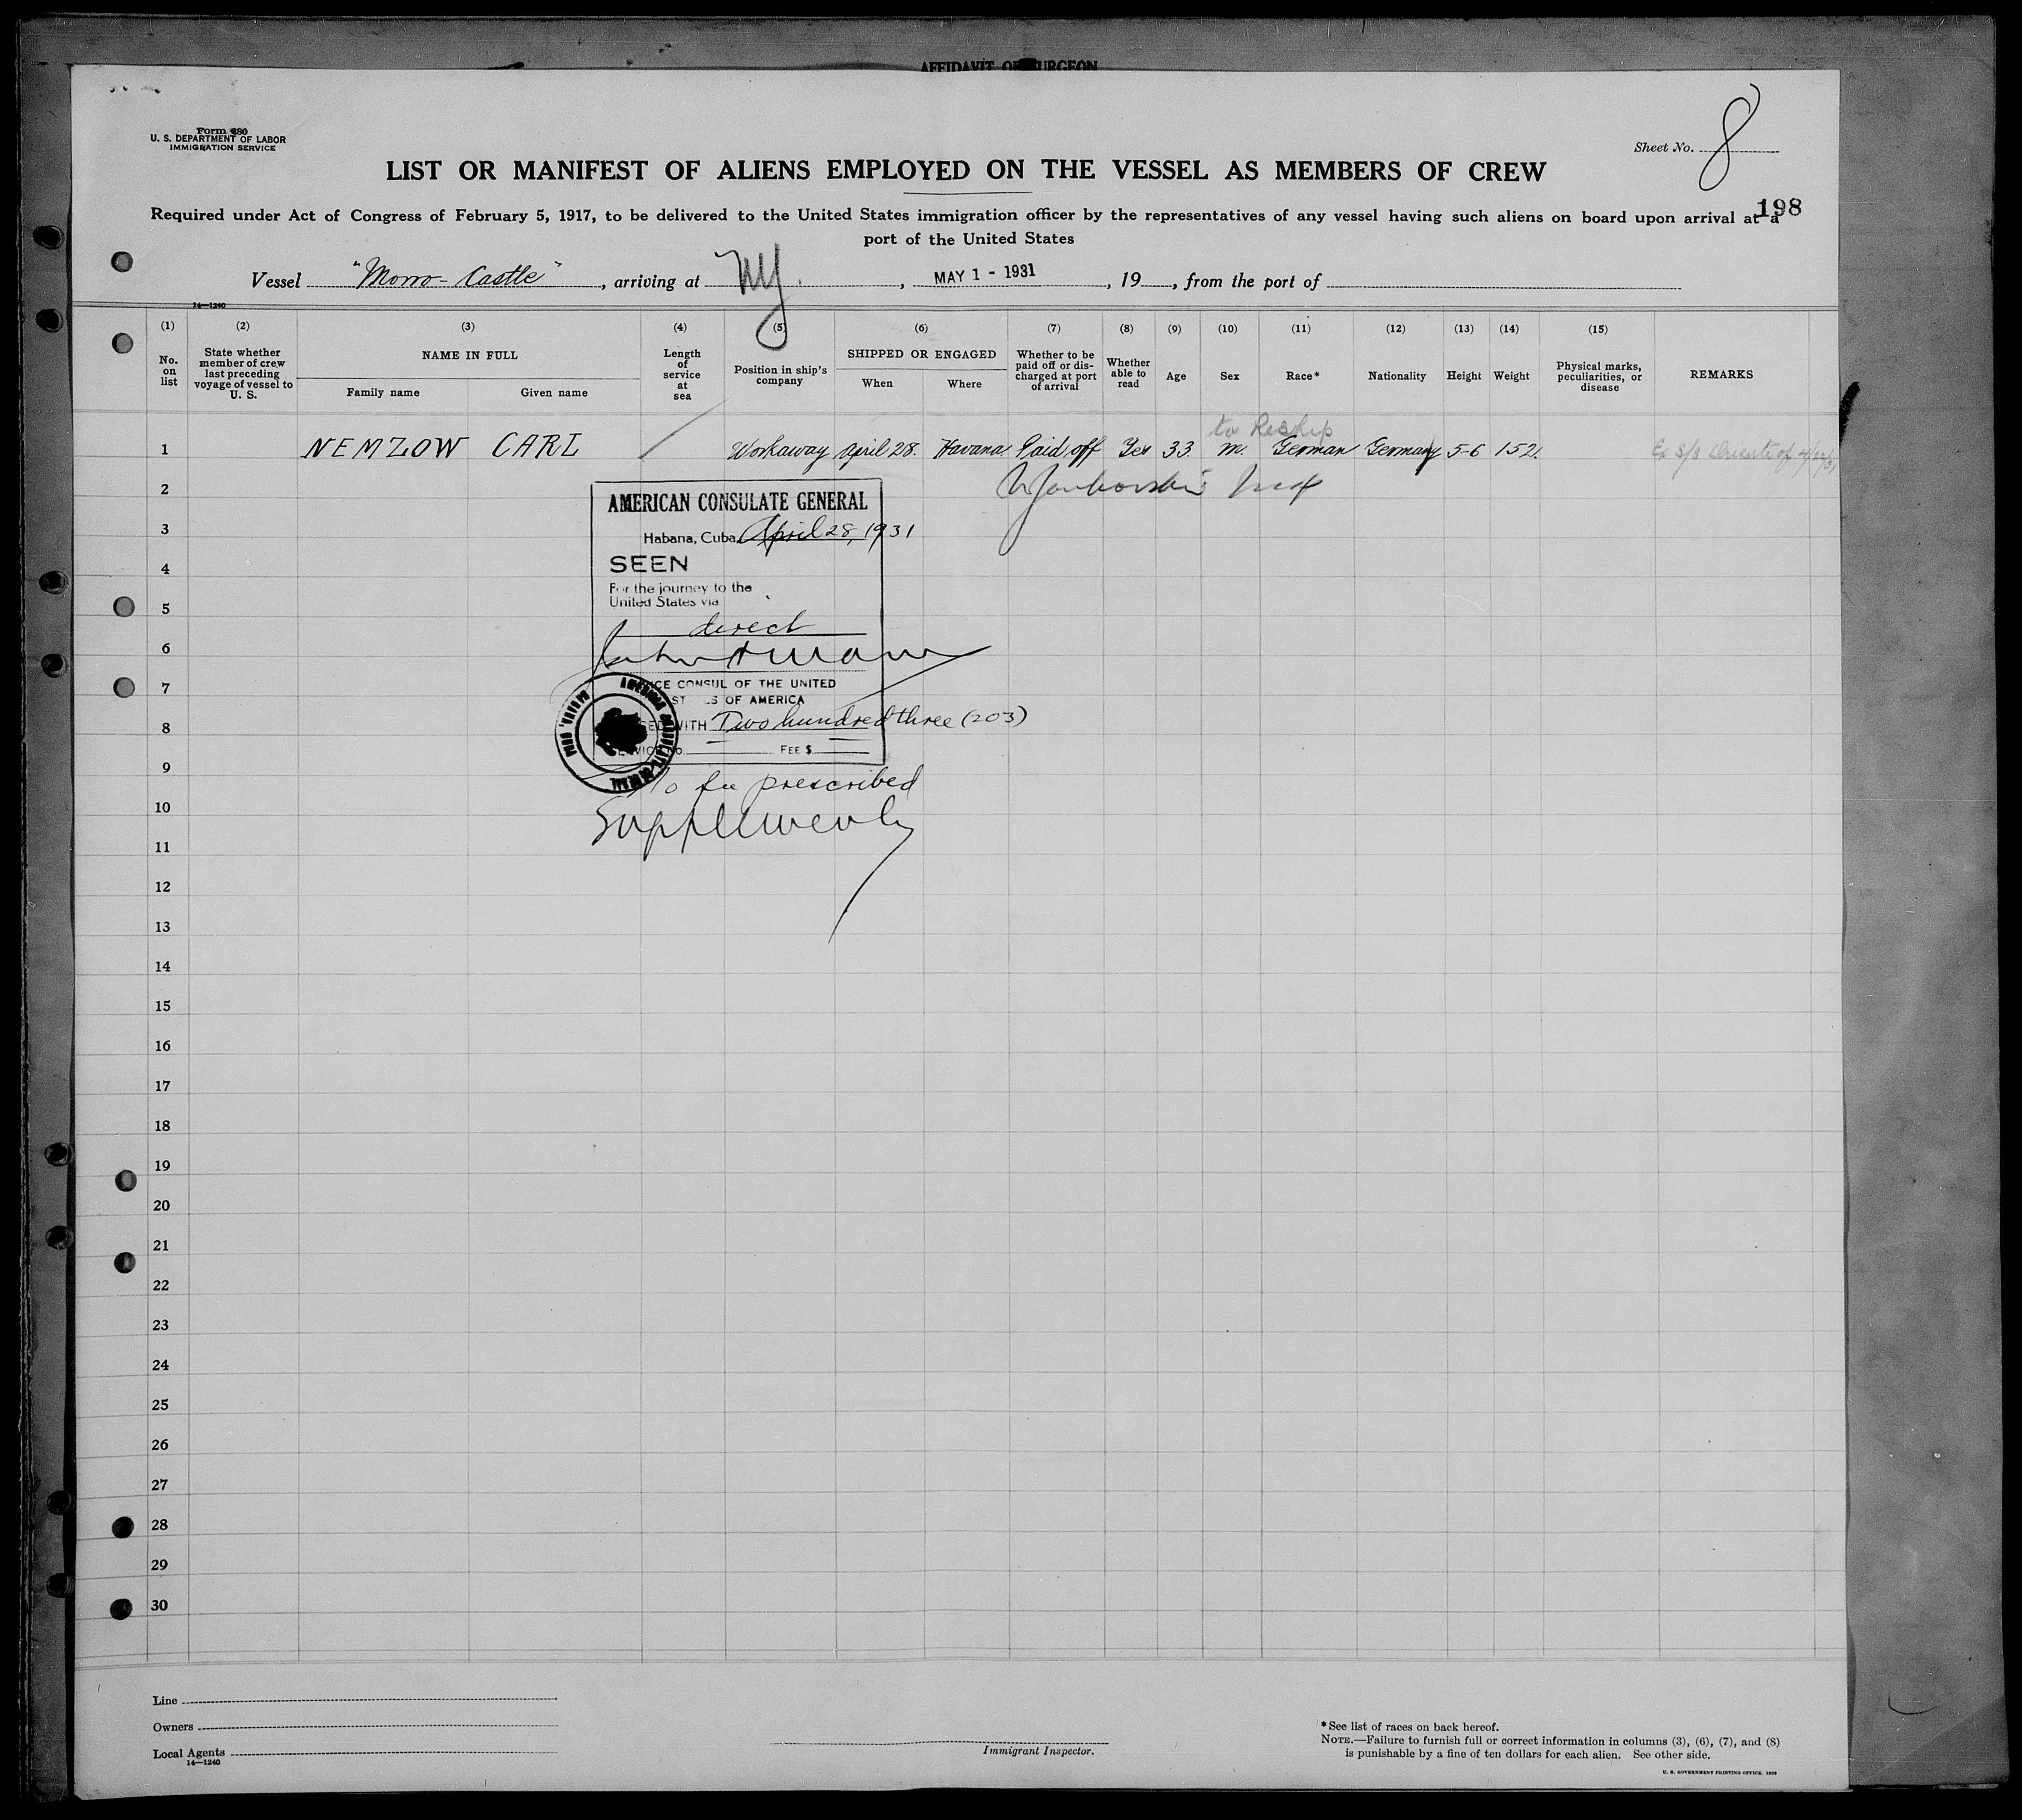 AFFIDAVIT OF SURGEON
Form 680
U. S. DEPARTMENT OF LABOR
IMMIGRATION SERVICE
Sheet No. 8
LIST OR MANIFEST OF ALIENS EMPLOYED ON THE VESSEL AS MEMBERS OF CREW
198
Required under Act of Congress of February 5, 1917, to be delivered to the United States immigration officer by the representatives of any vessel having such aliens on board upon arrival at a
port of the United States
Vessel "Morro-Castle", arriving at NY., MAY 1 - 1931, 19, from the port of
14—1240
(1) (2) (3) (4) (5) (6) (7) (8) (9) (10) (11) (12) (13) (14) (15)
No. on list
State whether member of crew last preceding voyage of vessel to U. S.
NAME IN FULL
Family name Given name
Length of service at sea
Position in ship's company
SHIPPED OR ENGAGED
When Where
Whether to be paid off or discharged at port of arrival
Whether able to read
Age
Sex
Race*
Nationality
Height
Weight
Physical marks, peculiarities, or disease
REMARKS
to Reship
1 NEMZOW CARL Workaway April 28. Havana Paid off Yes 33 m. German Germany 5-6 152. Ex S/S of
2
AMERICAN CONSULATE GENERAL
3
Habana, Cuba, April 28, 1931
SEEN
4
For the journey to the
United States via
5
direct
6
7
VICE CONSUL OF THE UNITED
STATES OF AMERICA
8
WITH Two hundred three (203)
SERVICE No. FEE $
9
No fee prescribed
10
Supplementary
11
12
13
14
15
16
17
18
19
20
21
22
23
24
25
26
27
28
29
30
Line
Owners
Local Agents
14—1240
Immigrant Inspector.
*See list of races on back hereof.
NOTE.—Failure to furnish full or correct information in columns (3), (6), (7), and (8)
is punishable by a fine of ten dollars for each alien. See other side.
U. S. GOVERNMENT PRINTING OFFICE